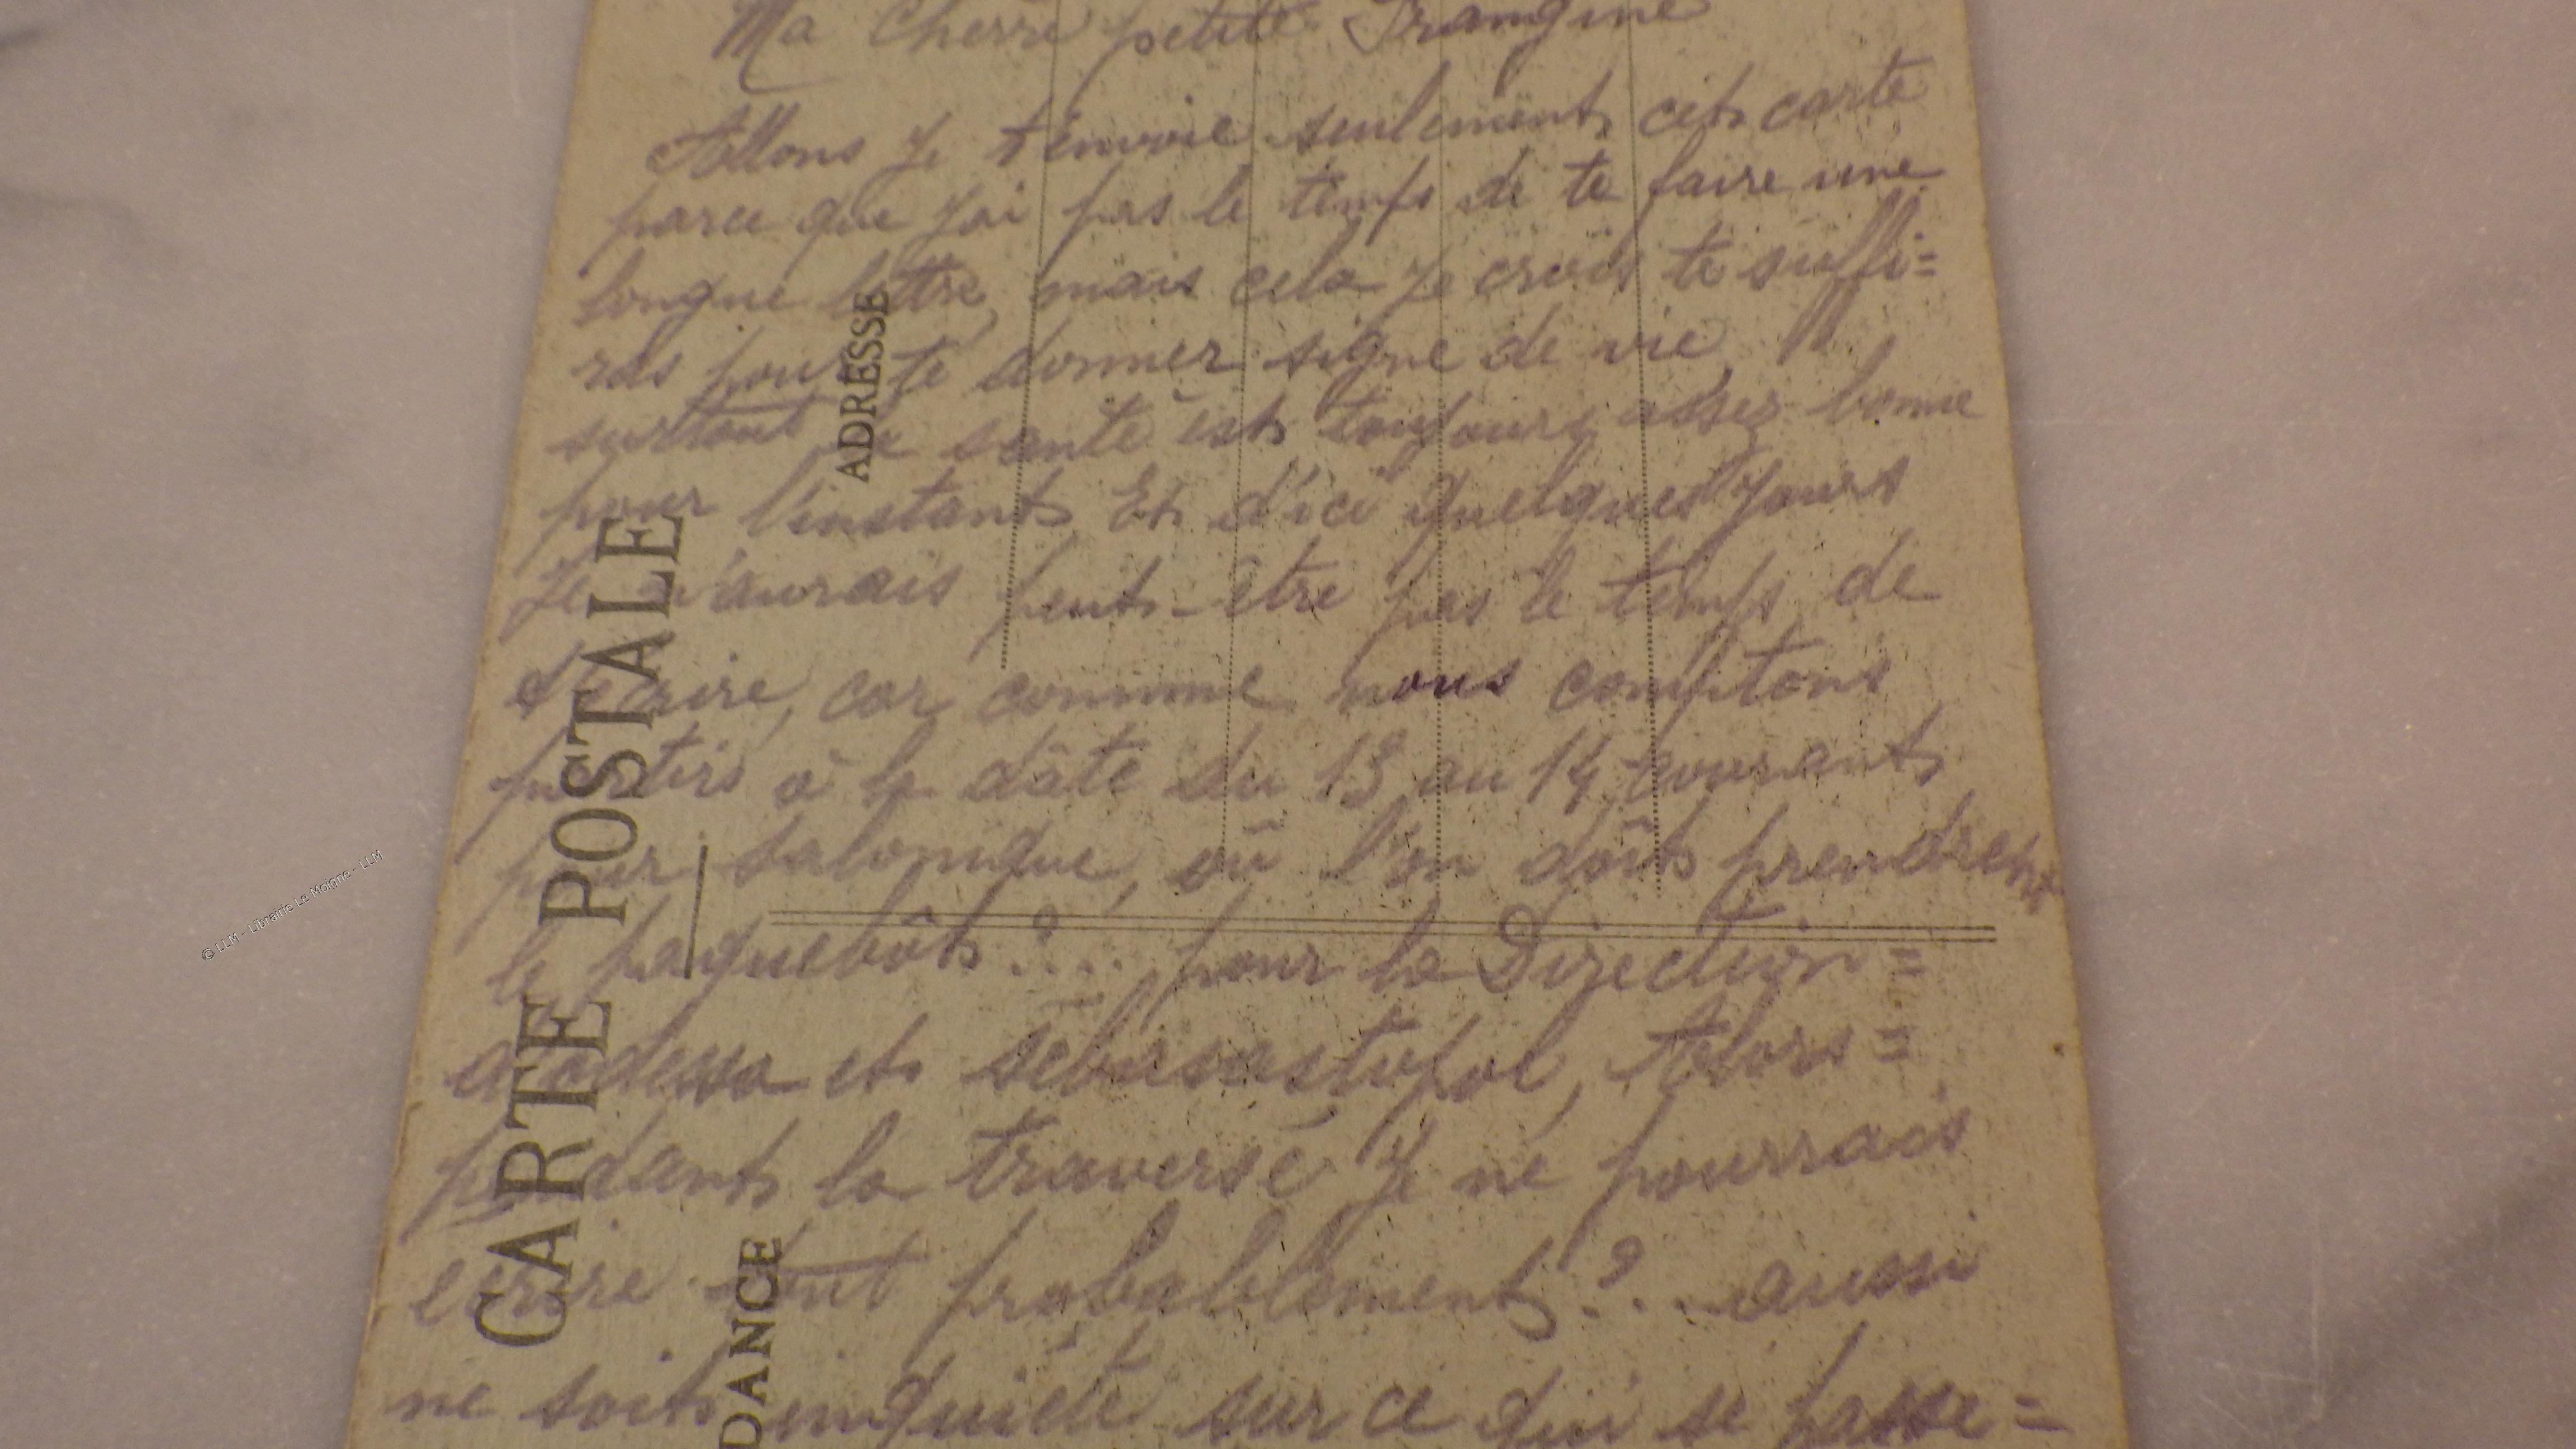 Ma Cherre petite Frangine
Allons Je t'envoie seulement cet carte
parce que J'ai pas le temps de te faire une
longue lettre, mais cela Je crois te suffi=
ras pour te donner signe de vie,
surtout la santé est toujours assez bonne
pour l'instant Et d'ici quelques Jours
Je n'aurais peut-être pas le temps de
t'écrire, car comme nous comptons
partirs à la dâte du 13 au 14 courant
pour salonique, où l'on doit prendre
le paquebôt ?... pour la Direction=
d'odessa et sébarsastopol, Alors=
pendant la traversé Je ne pourrais
ecrire tout probablement ?... aussi
ne soit inquiète sur ce qui se passe=
CARTE POSTALE
ADRESSE
DANCE
© LLM - Librairie Le Moigne - LLM